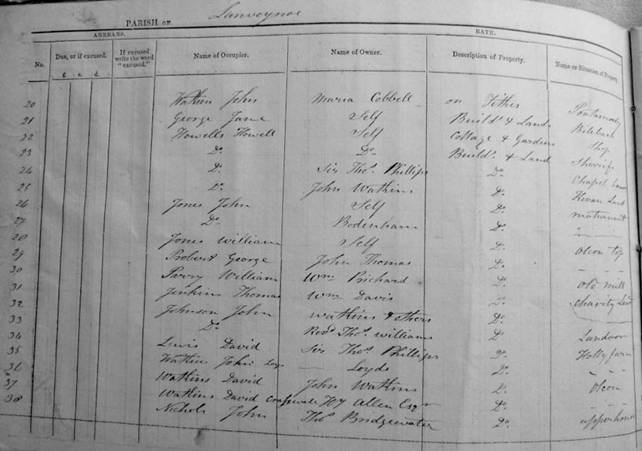 PARISH OF Lanveynoe
ARREARS. RATE.
No. Due, or if excused. If excused write the word "excused." Name of Occupier. Name of Owner. Description of Property. Name or Situation of Property
£ s. d.
20 Watkin John Maria Cobbell on Tithes
21 George Jane Self Build.s & Land
22 Howells Howell Self Cottage & Garden
23 Do. Do. Build.s & Land
24 Do. Sir Thos. Phillips Do.
25 Do. John Watkins Do. Chapel
26 Jones John Self Do.
27 Do. Bodenham Do.
28 Jones William Self Do.
29 Probert George John Thomas Do.
30 Parry William Wm Prichard Do. Old Mill
31 Jenkins Thomas Wm Davis Do. Charity Land
32 Johnson John Watkins & others Do.
33 Do. Revd. Thos. Williams
34 Lewis David Sir Thos. Phillips Do.
35 Watkin John Loyds Do.
36 Watkins David John Watkins Do. Olcon
37 Watkins David Hy Allen Esqr Do.
38 Nichols John Thos. Bridgewater Do. upperhouse